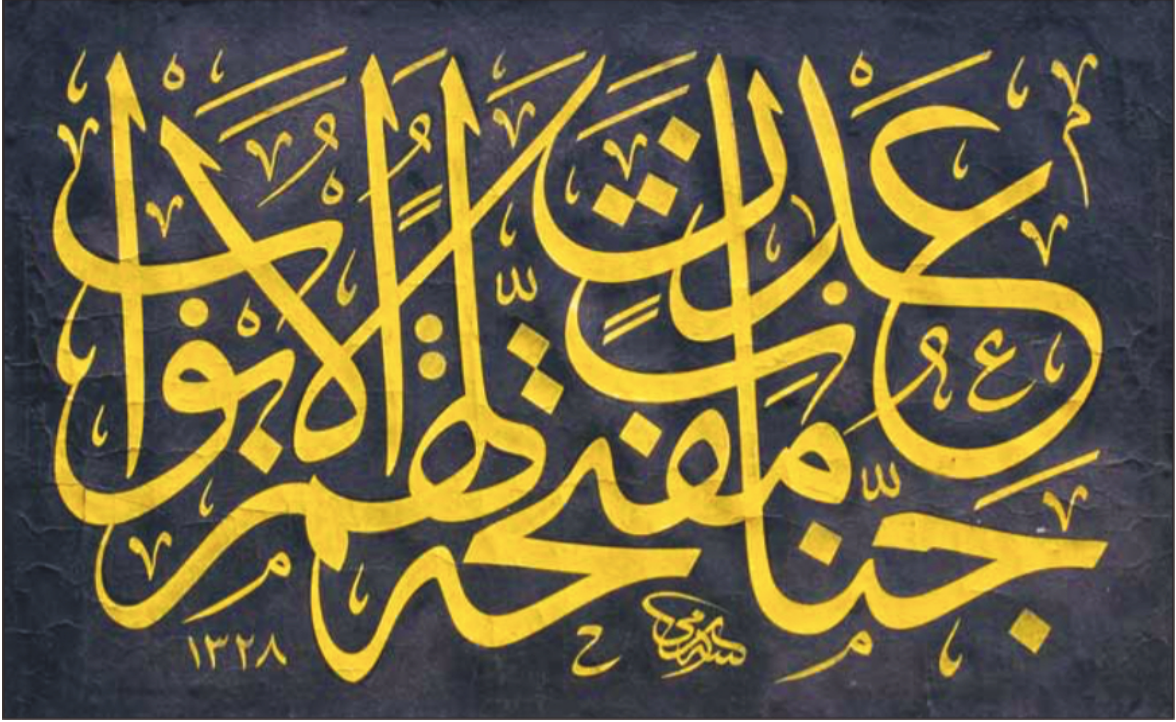 جَنَّاتِ عَدْنٍ مُفَتَّحَةً لَهُمُ الْاَبْوَابُ
١٣٢٨